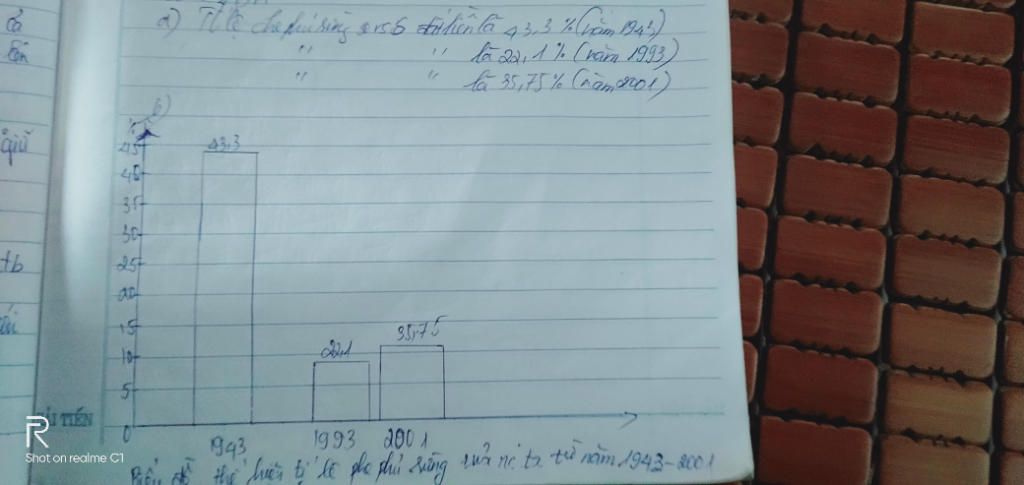 a) Tỉ lệ che phủ rừng so vs đ liền là 43,3 % (năm 1943)
" " là 22,1 % (năm 1993)
" " là 35,75 % (năm 2001)
b)
%
45
40
35
30
25
20
15
10
5
0
43,3
22,1
35,75
1943 1993 2001
Biểu đồ thể hiện tỉ lệ che phủ rừng của nc ta từ năm 1943-2001
giữ
tb
TIẾN
R
Shot on realme C1